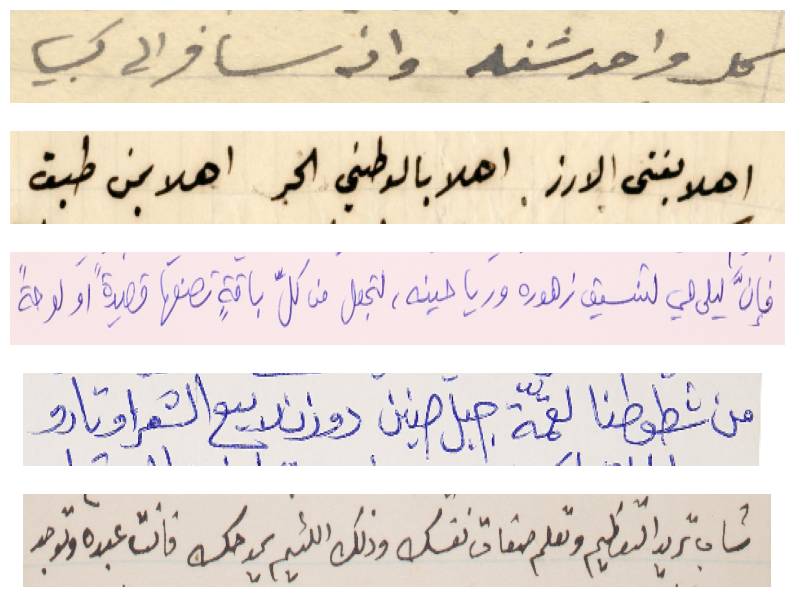 كل واحد شغله وانه سافر الى كيبيا
اهلا بفتى الارز . اهلا بالوطني الحر اهلا بمن طبق
فإنَّ ليلى هي لتنسيق زهوره ورياحينه، لتجعل من كلّ باقةٍ تصنعها قصيدةً او لوحةً
من شطوطنا لقمّة جبل صنين دوزنلا بيع الشعر اوتارو
شاب تريد التعظيم وتعلم صفات نفسك وذلك اللئيم يمدحك فانت عبده وتوجد